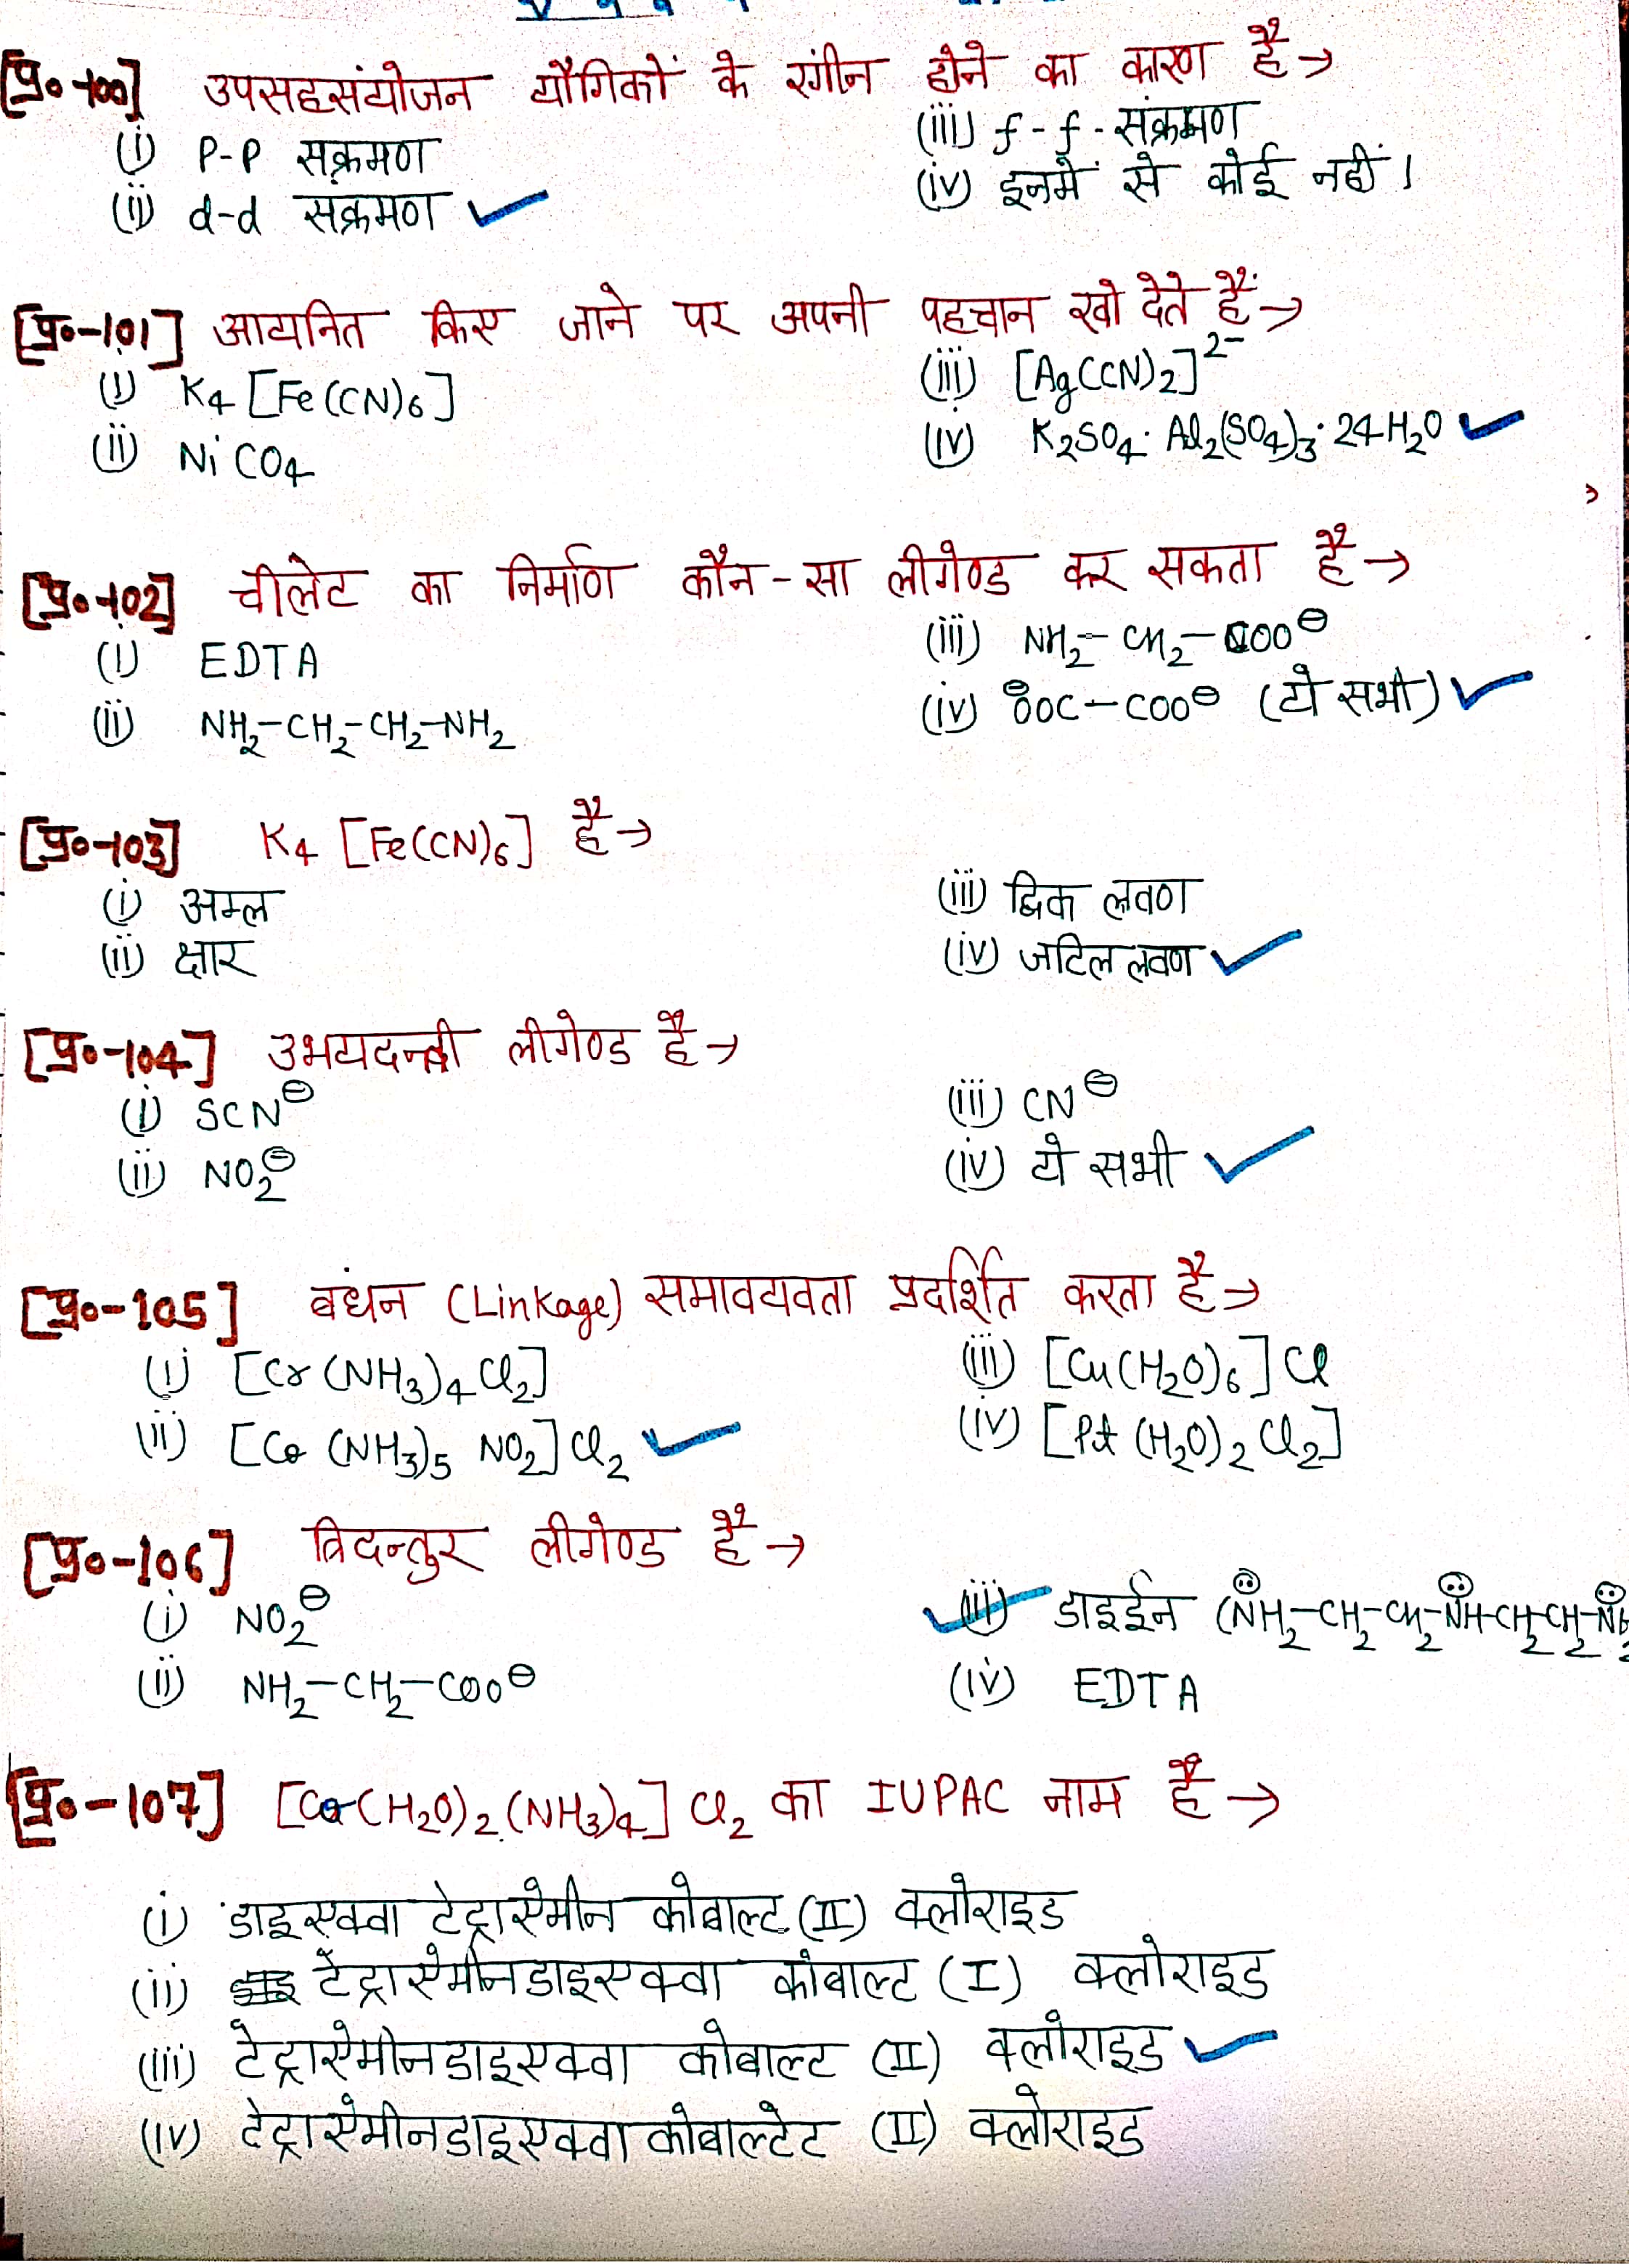 [प्र०-100] उपसहसंयोजन यौगिकों के रंगीन होने का कारण है →
(i) P-P संक्रमण
(iii) f-f-संक्रमण
(ii) d-d संक्रमण ✓
(iv) इनमें से कोई नहीं।
[प्र०-101] आयनित किए जाने पर अपनी पहचान खो देते हैं →
(i) K₄ [Fe(CN)₆]
(iii) [Ag(CN)₂]²⁻
(ii) NiCO₄
(iv) K₂SO₄·Al₂(SO₄)₃·24H₂O ✓
[प्र०-102] चीलेट का निर्माण कौन-सा लीगेण्ड कर सकता है →
(i) EDTA
(iii) NH₂-CH₂-COO⊖
(ii) NH₂-CH₂-CH₂-NH₂
(iv) ⊖OOC-COO⊖ (ये सभी) ✓
[प्र०-103] K₄ [Fe(CN)₆] है →
(i) अम्ल
(iii) द्विक लवण
(ii) क्षार
(iv) जटिल लवण ✓
[प्र०-104] उभयदन्ती लीगेण्ड है →
(i) SCN⊖
(iii) CN⊖
(ii) NO₂⊖
(iv) ये सभी ✓
[प्र०-105] बंधन (Linkage) समावयवता प्रदर्शित करता है →
(i) [Cr(NH₃)₄Cl₂]
(iii) [Cu(H₂O)₆]Cl
(ii) [Co(NH₃)₅ NO₂]Cl₂ ✓
(iv) [Pt(H₂O)₂Cl₂]
[प्र०-106] त्रिदन्तुर लीगेण्ड है →
(i) NO₂⊖
✓(iii) डाइईन (NH₂-CH₂-CH₂-NH-CH₂CH₂-NH₂
(ii) NH₂-CH₂-COO⊖
(iv) EDTA
[प्र०-107] [Co(H₂O)₂(NH₃)₄]Cl₂ का IUPAC नाम है →
(i) डाइएक्वा टेट्राऐमीन कोबाल्ट (II) क्लोराइड
(ii) टेट्राऐमीनडाइएक्वा कोबाल्ट (I) क्लोराइड
(iii) टेट्राऐमीनडाइएक्वा कोबाल्ट (II) क्लोराइड ✓
(iv) टेट्राऐमीनडाइएक्वाकोबाल्टेट (II) क्लोराइड